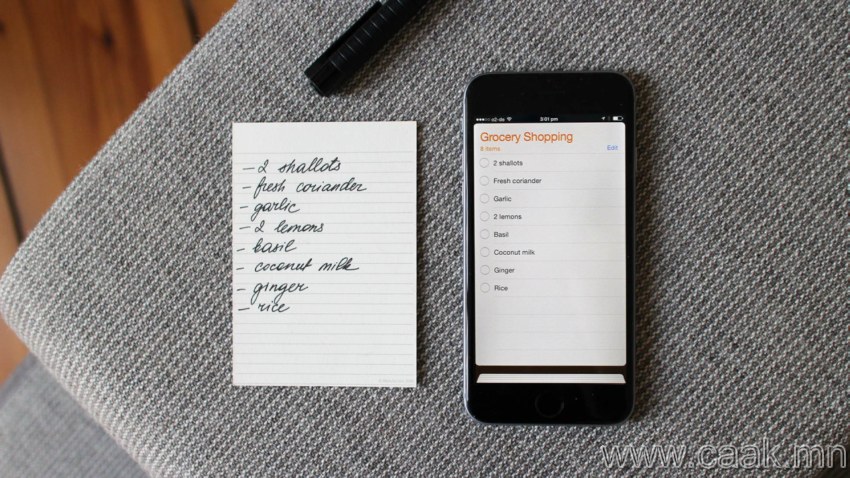 – 2 shallots
– fresh coriander
– garlic
– 2 lemons
– basil
– coconut milk
– ginger
– rice
3:01 pm
Grocery Shopping
8 items
Edit
2 shallots
Fresh coriander
Garlic
2 lemons
Basil
Coconut milk
Ginger
Rice
www.caak.mn